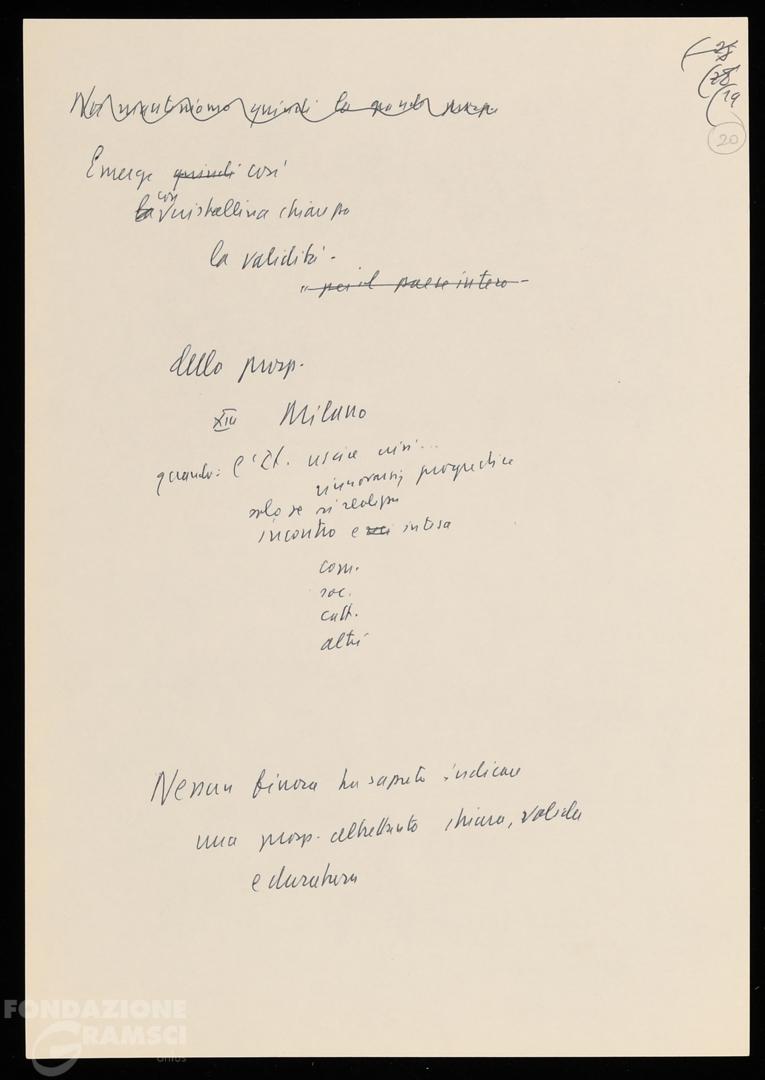 28
28
19
20
Noi manteniamo quindi la grande prosp.
Emerge quindi così
con
la cristallina chiarezza
la validità -
" per il paese intero -
della prosp.
XIII Milano
quando: l'It. uscire crisi...
rinnovarsi, progredire
solo se si realizza
incontro e intesa
com.
soc.
catt.
altri
Nessun finora ha saputo indicare
una prosp. altrettanto chiara, valida
e duratura
FONDAZIONE
GRAMSCI
onlus